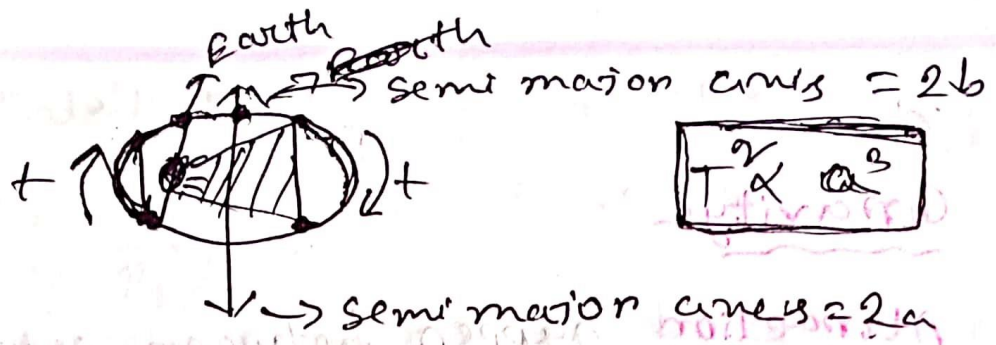 Earth
semi major axis = 2b
+ +
T² ∝ a³
semi major axis = 2a